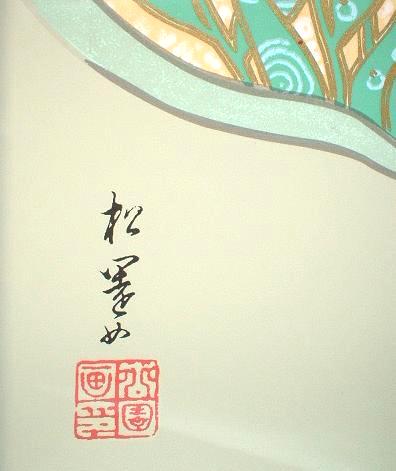 松園女
松園画印